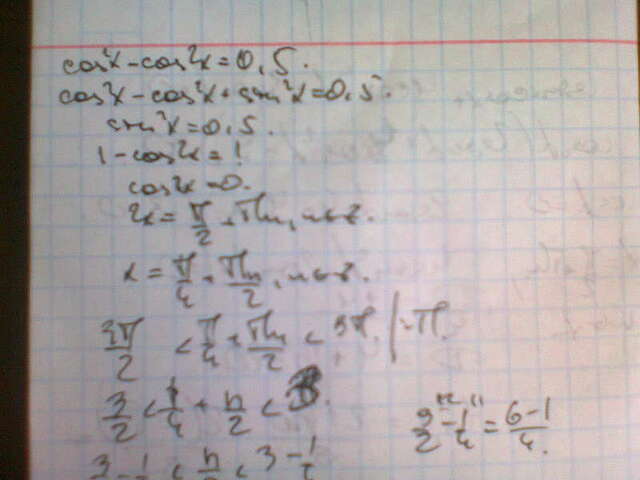 cos²x - cos2x = 0,5.
cos²x - cos²x + sin²x = 0,5.
sin²x = 0,5.
1 - cos2x = 1
cos2x = 0.
2x = π/2 + πn, n∈Z.
x = π/4 + πn/2, n∈Z.
3π/2 < π/4 + πn/2 < 3π. | :π.
3/2 < 1/4 + n/2 < 3.
3/2 - 1/4 = (6-1)/4.
3 - 1 < n < 3 - 1